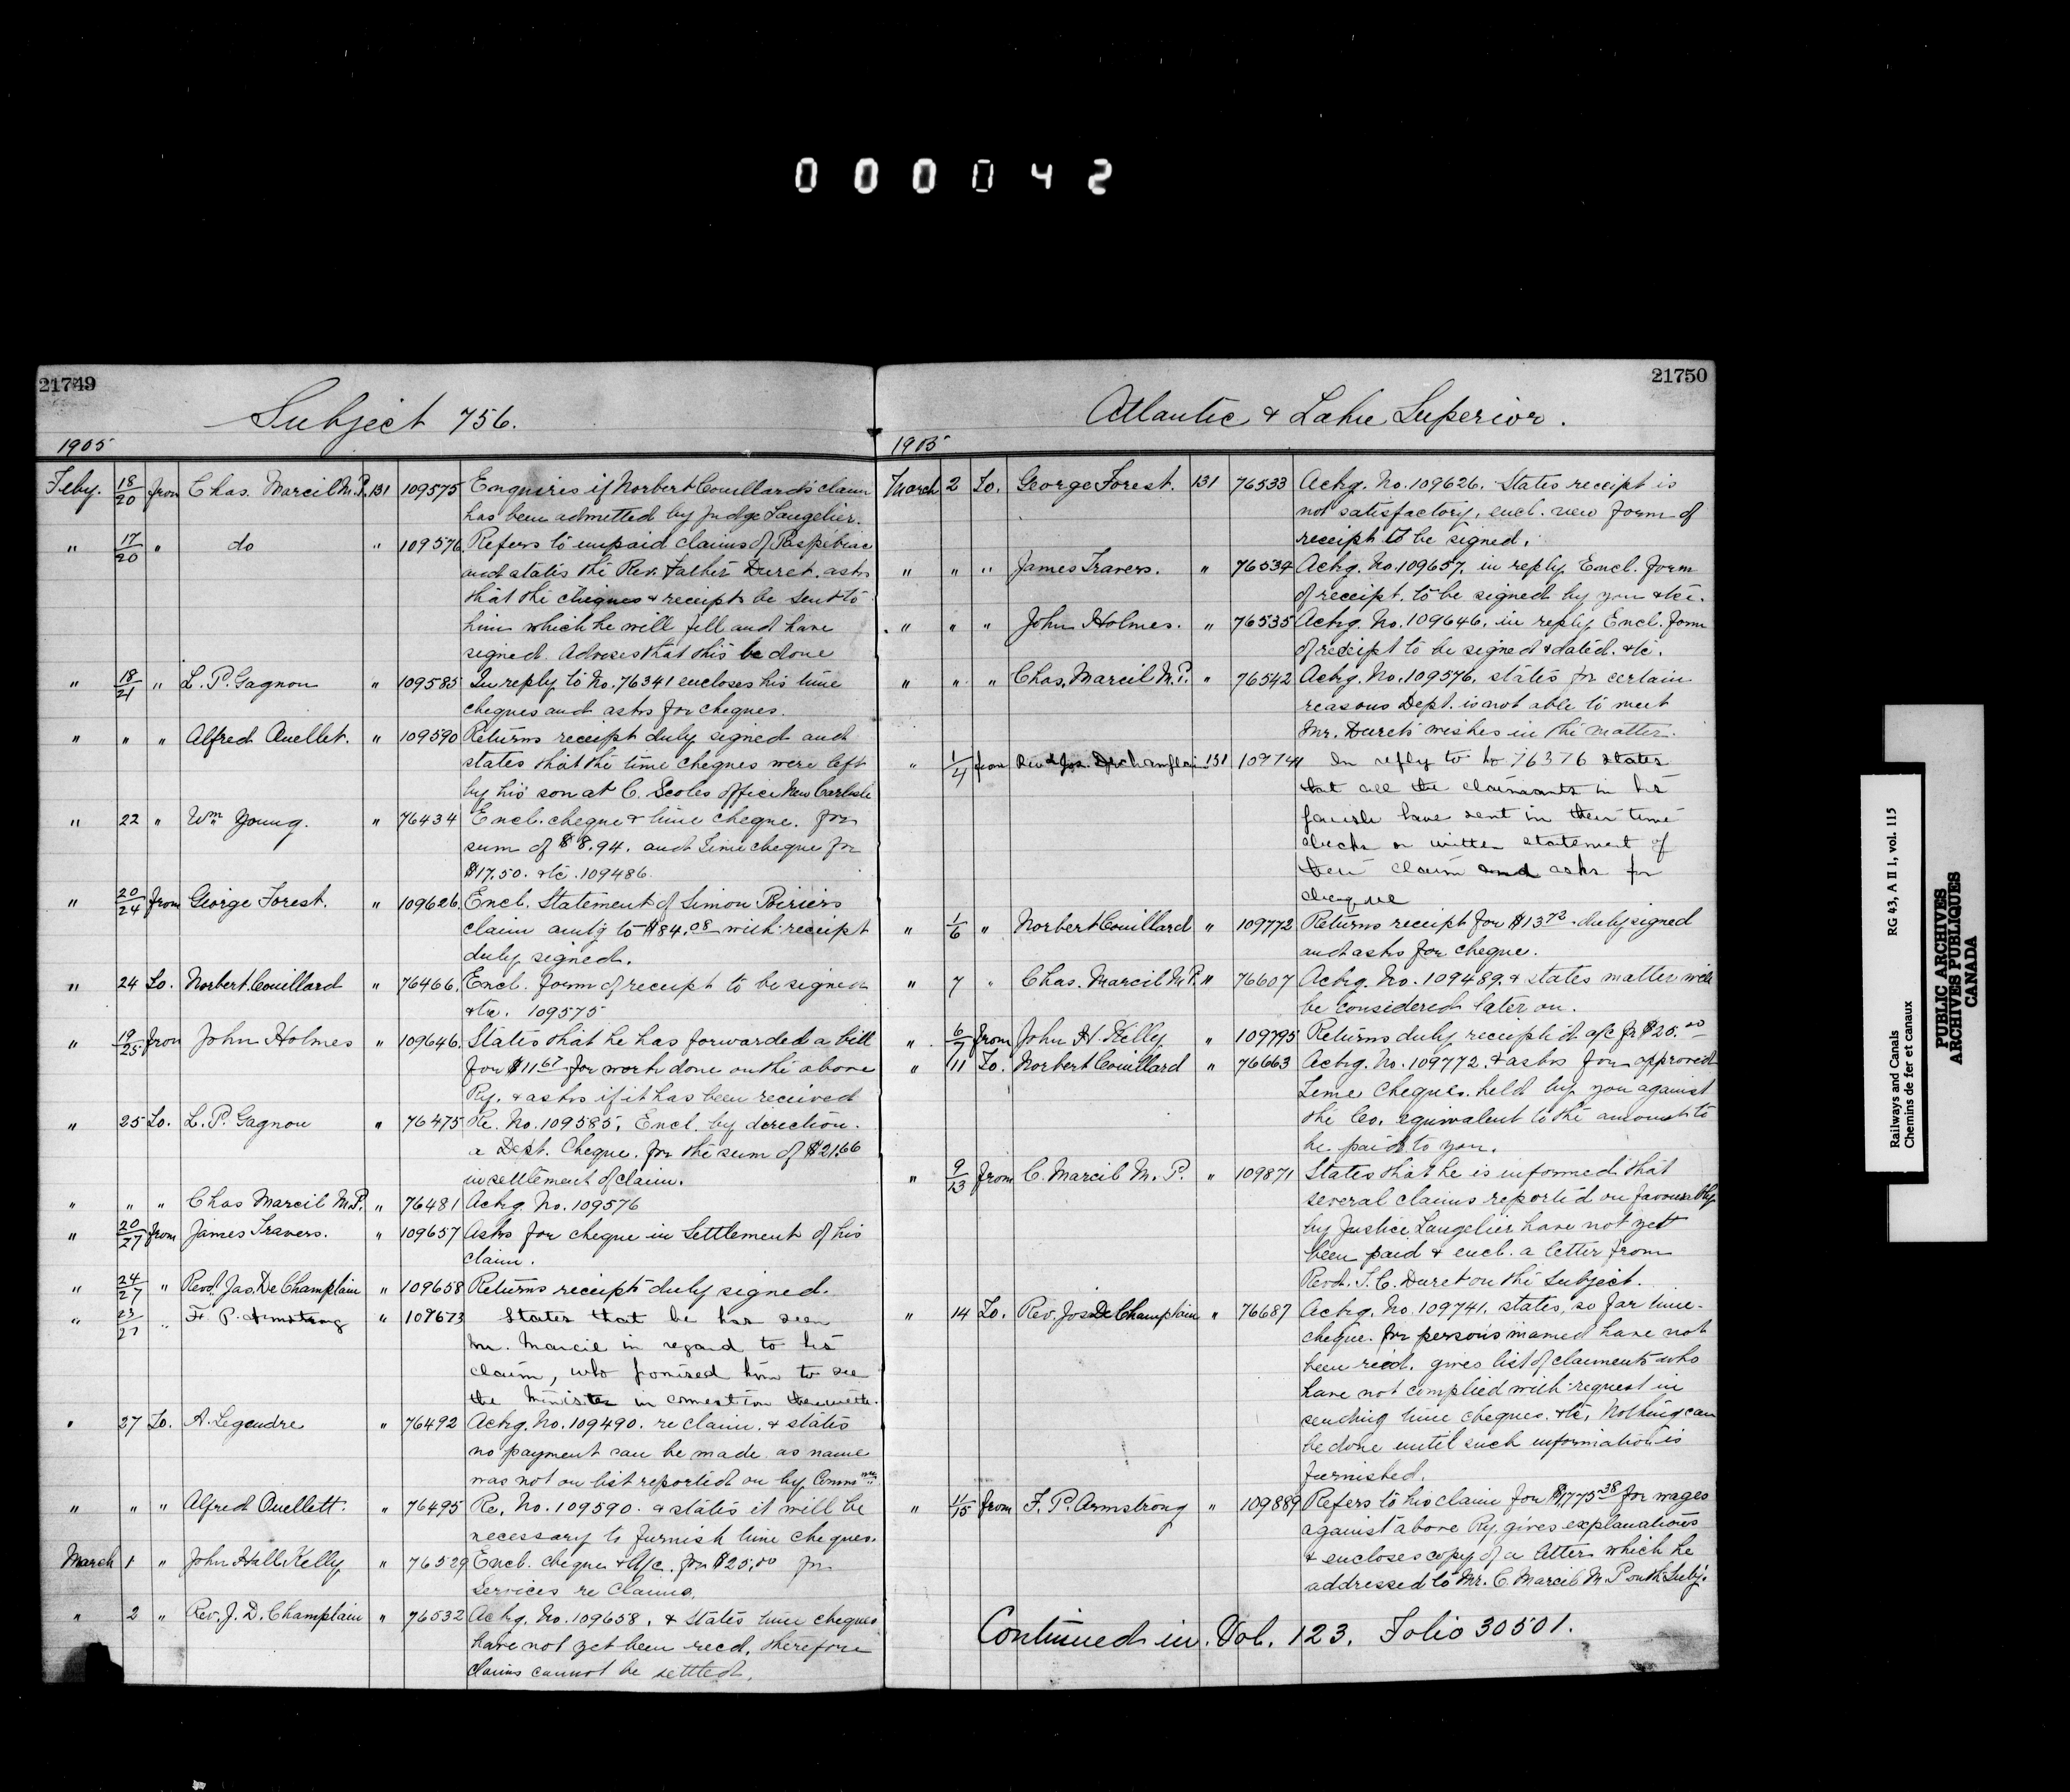 000042
21749
Subject 756.
1905
Feby. 18/20 from Chas. Marcil M.P. 131 109575 Enquires if Norbert Couillard's claim
has been admitted by Judge Langelier.
" 17/20 " do " 109576 Refers to unpaid claims of Paspebiac
and states the Rev. Father Duret. asks
that the cheques & receipts be sent to
him which he will fill and have
signed. Advises that this be done
" 18/21 " L. P. Gagnon " 109585 In reply to No. 76341 encloses his time
cheques and asks for cheques.
" " " Alfred Ouellet. " 109590 Returns receipt duly signed and
states that the time cheques were left
by his son at C. Scoles office New Carlisle
" 22 " Wm Young. " 76434 Encl. cheque & time cheque. for
sum of $8.94. and Time cheque for
$17.50. &c. 109486.
" 20/24 from George Forest. " 109626. Encl. Statement of Simon Poiriers
claim amtg to $84.08 with receipt
duly signed.
" 24 To. Norbert Couillard " 76466. Encl. form of receipt to be signed
&c. 109575
" 19/25 from John Holmes " 109646. States that he has forwarded a bill
for $11.67 for work done on the above
Ry. & asks if it has been received
" 25 To. L. P. Gagnon " 76475 Re. No. 109585. Encl. by direction.
a Dept. Cheque. for the sum of $21.66
in settlement of claim.
" " " Chas Marcil M.P. " 76481 Ackg. No. 109576
" 20/27 from James Travers. " 109657 Asks for cheque in Settlement of his
claim.
" 24/27 " Revd. Jas. De Champlain " 109658 Returns receipts duly signed.
" 23/27 " F. P. Armstrong " 109673 States that he has seen
Mr. Marcil in regard to his
claim, who promised him to see
the Minister in connection therewith.
" 27 To. A. Legendre " 76492 Ackg. No. 109490. re claim. & states
no payment can be made as name
was not on list reported on by Commr
" " " Alfred Ouellett. " 76495 Re. No. 109590. & states it will be
necessary to furnish time cheques.
March 1 " John Hall Kelly " 76529 Encl. cheque & A/c. for $25.00 for
services re Claims.
" 2 " Rev. J. D. Champlain " 76532 Ackg. No. 109658. & States time cheques
have not yet been recd. therefore
claims cannot be settled.
21750
Atlantic & Lake Superior.
1905
March 2 To. George Forest. 131 76533 Ackg. No. 109626. States receipt is
not satisfactory. encl. new form of
receipt to be signed.
" " " James Travers. " 76534 Ackg. No. 109657. in reply Encl. form
of receipt. to be signed by you &tc.
" " " John Holmes. " 76535 Ackg. No. 109646. in reply Encl. form
of receipt to be signed & dated. &c.
" " " Chas. Marcil M.P. " 76542 Ackg. No. 109576. states for certain
reasons Dept. is not able to meet
Mr. Duret's wishes in the matter.
" 1/4 from Revd Jos. Dechamplain 131 109741 In reply to No 76376 states
that all the claimants in his
parish have sent in their time
checks or written statement of
their claim and asks for
cheque
" 1/6 " Norbert Couillard " 109772 Returns receipt for $13.72 duly signed
and asks for cheque.
" 7 " Chas. Marcil M.P. " 76607 Ackg. No. 109489. & states matter will
be considered later on.
" 6/7 from John H. Kelly " 109795 Returns duly receipted a/c for $25.00
" 11 To. Norbert Couillard " 76663 Ackg. No. 109772. & asks for approved
Time Cheques. held by you against
the Co. equivalent to the amount to
be paid to you.
" 9/13 from C. Marcil M. P. " 109871 States that he is informed that
several claims reported on favourably
by Justice Langelier have not yet
been paid & encl. a letter from
Revd. T. C. Duret on the Subject.
" 14 To. Rev. Jos De Champlain " 76687 Ackg. No. 109741. states, so far time-
cheque. for persons named have not
been recd. gives list of claiments who
have not complied with request in
sending time cheques. &c. Nothing can
be done until such information is
furnished.
" 11/15 from F. P. Armstrong " 109889 Refers to his claim for $1,775.38 for wages
against above Ry. gives explanations
& encloses copy of a letter which he
addressed to Mr. C. Marcil M.P on the Subj.
Continued in. Vol. 123. Folio 30501.
Railways and Canals RG 43, A II 1, vol. 115
Chemins de fer et canaux
PUBLIC ARCHIVES
ARCHIVES PUBLIQUES
CANADA